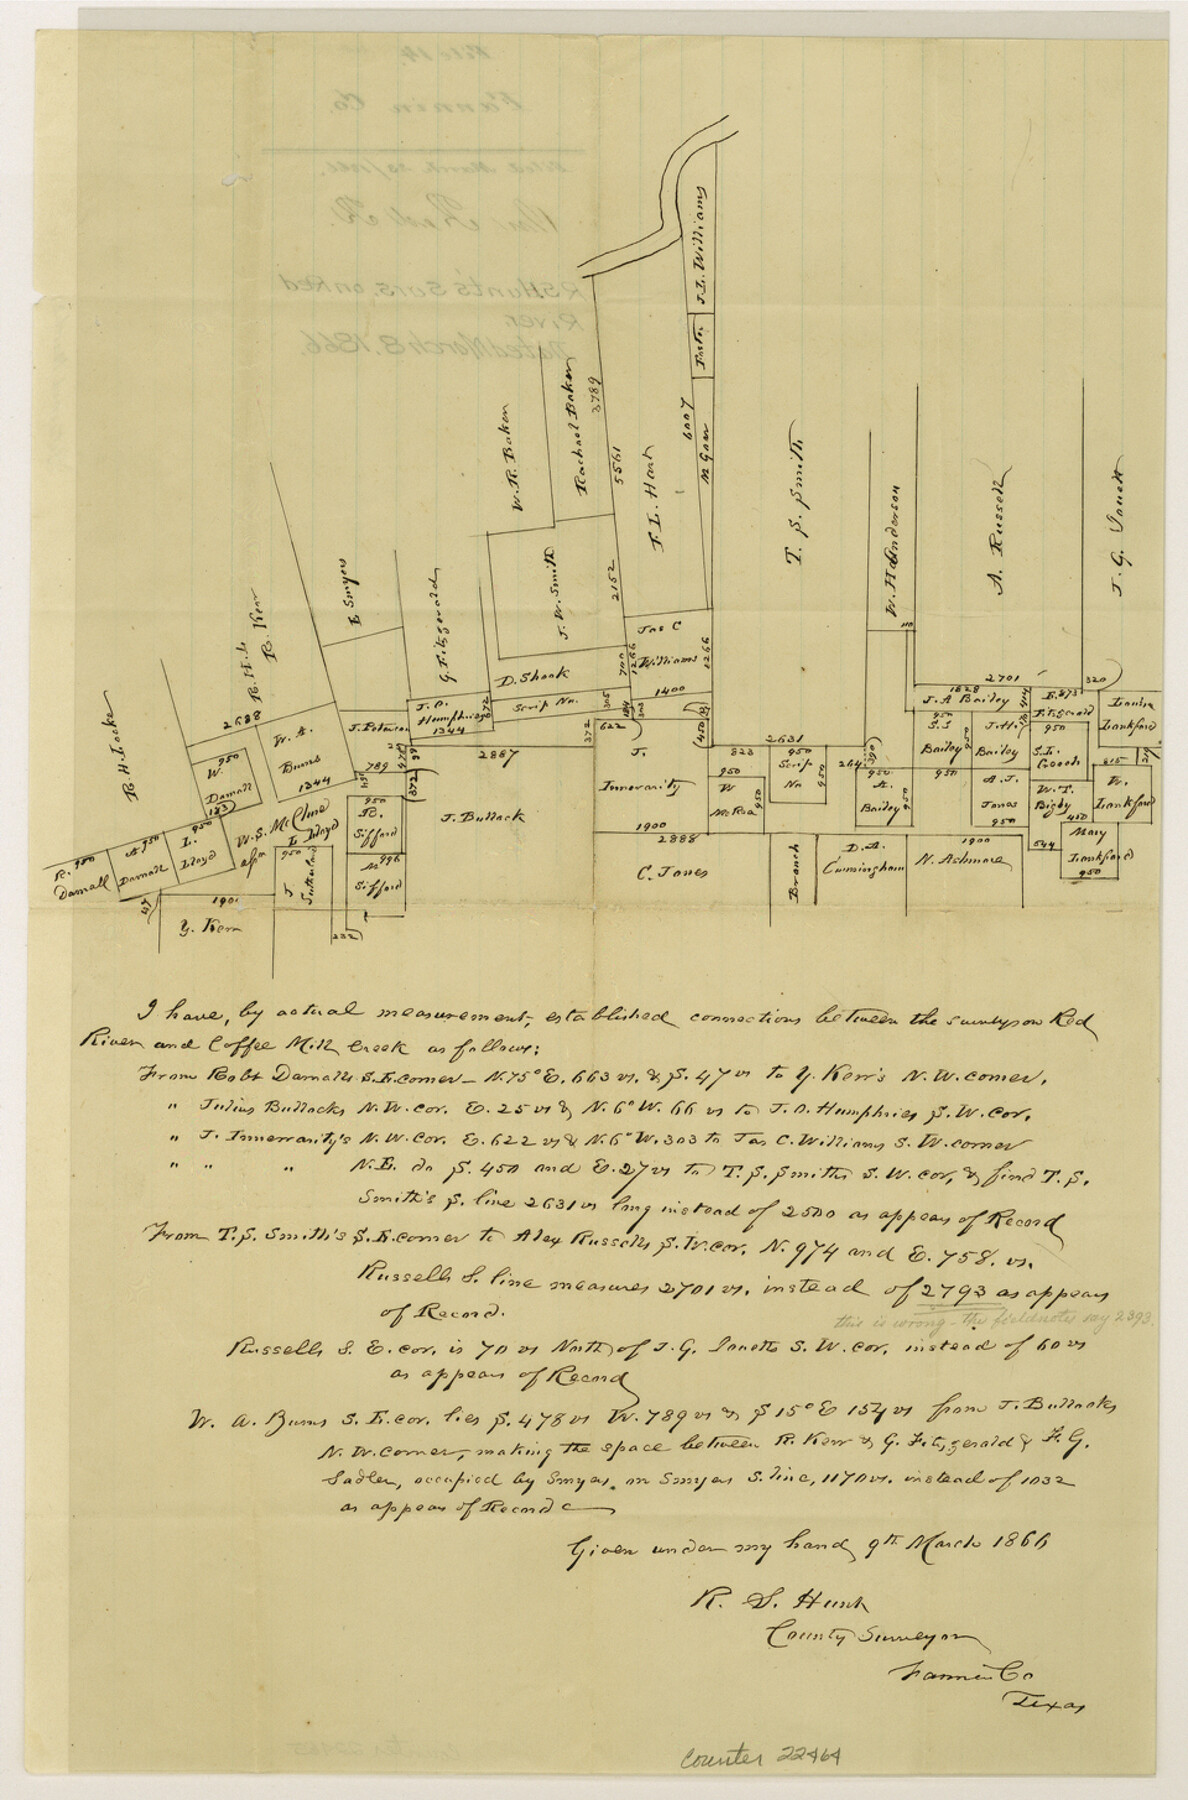 J. L. Williams
M Garr
6007
W. R. Baker
Rachael Baker
3789
5561
F. L. Hart
T. S. Smith
W. H. Anderson
A. Russell
J. G. Jouett
R. H. Locke
R. Kerr
E Smyers
G. Fitzgerald
J. W. Smith
2152
Jas C
Williams
1266
1266
700
1400
D. Shook
Scrip No.
305
J. P.
Humphries
1344
372
2688
W. A.
Burns
1344
W. 950
Darnall
J. Bateman
789
2887
372
622
303
J.
Innerarity
1900
450
2631
823
950
Scrip
No
950
264
390
950
W
McRea
950
950
A.
Bailey
950
2701
1828
J. A Bailey
E. 873
Fitzgerald
320
Louisa
Lankford
950
S. S
Bailey
950
J. H.
Bailey
950
S. E.
Gooch
950
A. J.
Jonas
950
W. T.
Bigby
450
815
W.
Lankford
Mary
Lankford
950
544
R. 950
Darnall
A. 950
Darnall
L. 950
Lloyd
183
W. S. McClure
E Lloyd
950
J
Sutherland
950
R.
Sifford
M 996
Sifford
372
J. Bullock
2888
C. Jones
Branch
D. A.
Cunningham
1900
N. Ashmore
47
1901
Y. Kerr
232
I have, by actual measurement, established connections between the surveys on Red
River and Coffee Mill Creek as follows:
From Robt Darnalls S.E. corner - N. 75° E. 663 vs. & S. 47 vs to Y. Kerr's N.W. corner.
" Julius Bullocks N.W. cor. E. 25 vs & N. 6° W. 66 vs to J. P. Humphries S.W. Cor.
" J. Innerarity's N.W. Cor. E. 622 vs & N. 6° W. 303 to Jas C. Williams S.W. corner
" " " N.E. do S. 450 and E. 27 vs to T. S. Smiths S.W. cor, & find T. S.
Smith's S. line 2631 vs long instead of 2500 as appears of Record
From T. S. Smith's S.E. corner to Alex Russells S.W. cor. N. 974 and E. 758. vs.
Russells S. line measures 2701 vs. instead of 2793 as appears
of Record.
this is wrong - the fieldnotes say 2393.
Russells S. E. cor. is 70 vs North of J. G. Jouetts S. W. cor. instead of 60 vs
as appears of Record
W. A. Burns S. E. cor. lies S. 478 vs W. 789 vs & S 15° E 154 vs from J. Bullocks
N. W. corner, making the space between R. Kerr & G. Fitzgerald & F. G.
Sadler, occupied by Smyers, on Smyers S. line, 1170 vs. instead of 1032
as appears of Record
Given under my hand 9th March 1866
R. S. Hunt
County Surveyor
Fannin Co
Texas
Counter 22464